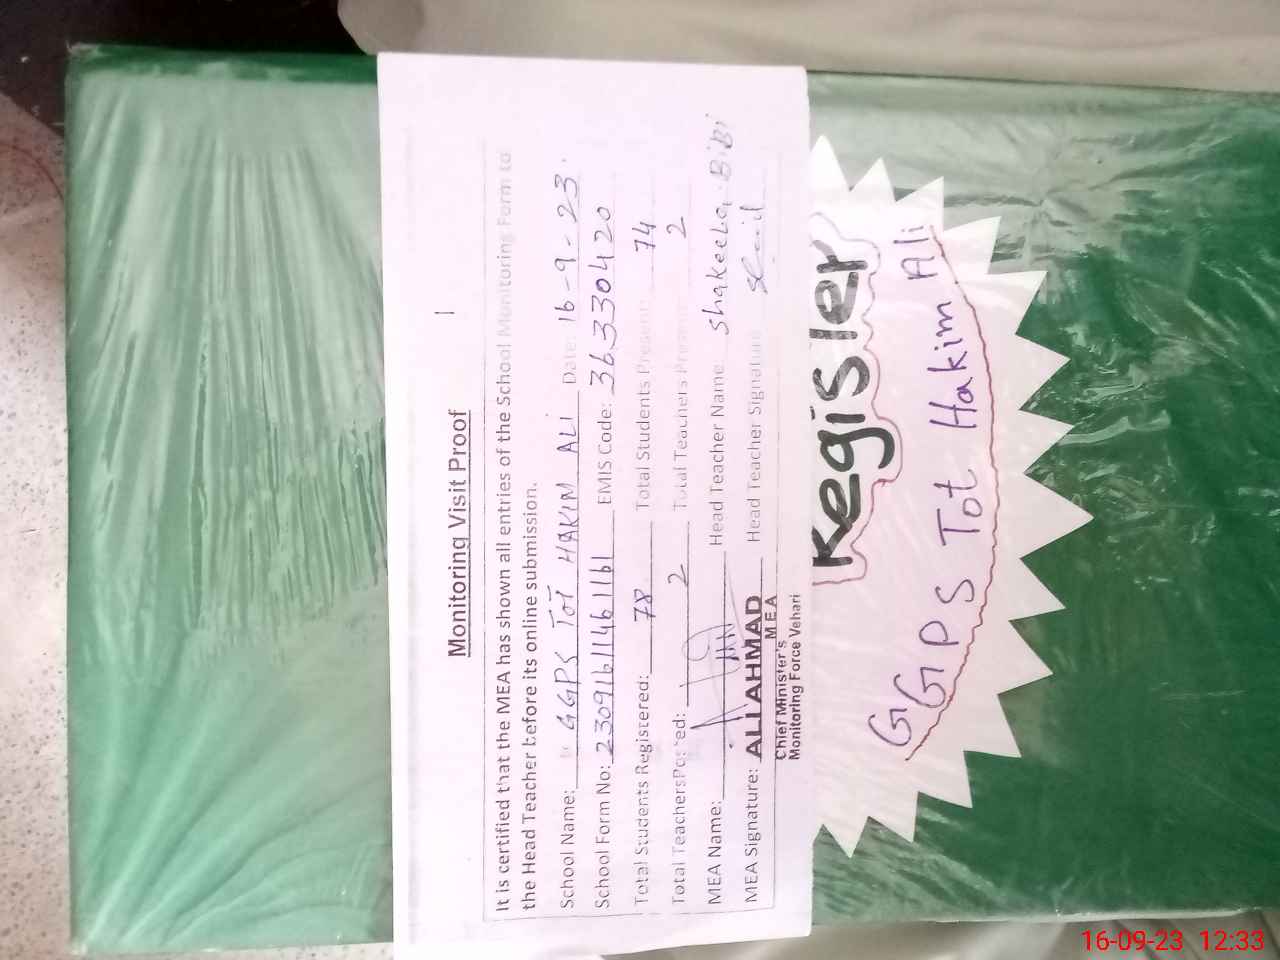 Monitoring Visit Proof
It is certified that the MEA has shown all entries of the School Monitoring Form to
the Head Teacher before its online submission.
School Name: GGPS Tot HAKIM ALi Date: 16-9-23.
School Form No: 23091611461161 EMIS Code: 36330420
Total Students Registered: 78 Total Students Present: 74
Total Teachers Posted: 2 Total Teachers Present: 2
MEA Name: Head Teacher Name: Shakeela BiBi
MEA Signature: ALI AHMAD Head Teacher Signature
M E A
Chief Minister's
Monitoring Force Vehari
Register
GGPS Tot Hakim Ali
16-09-23 12:33